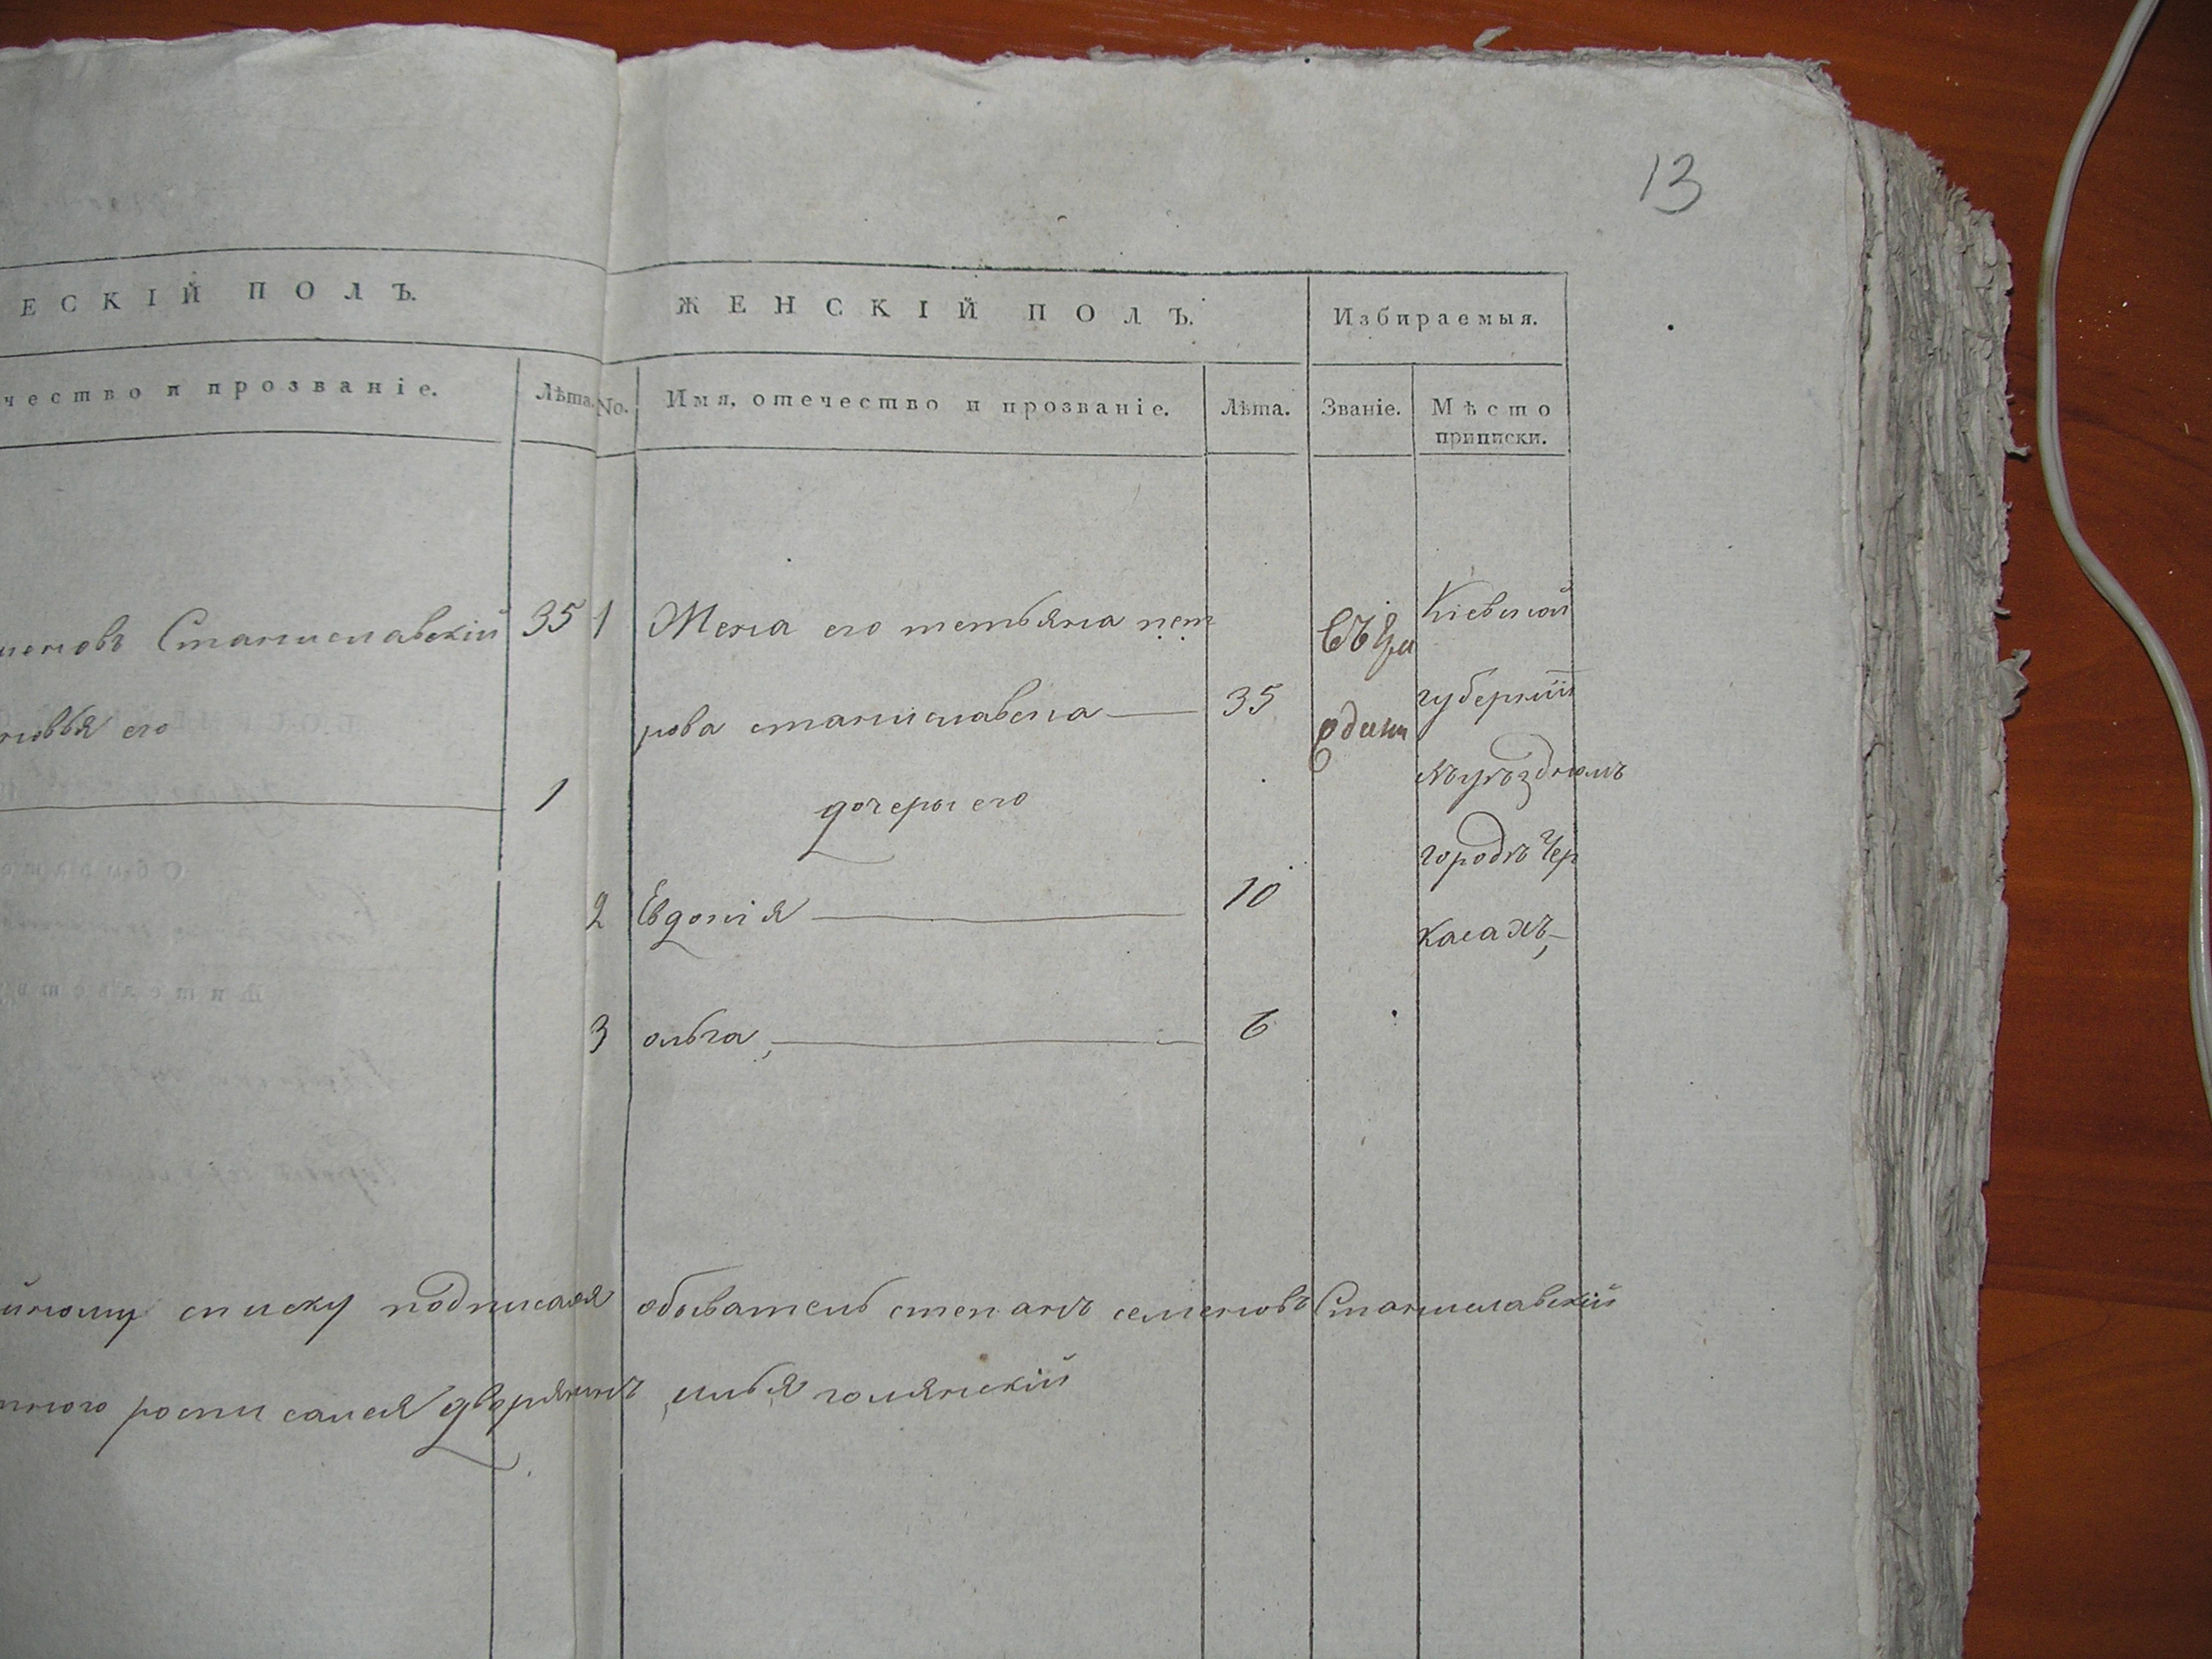 13
ЕСКІЙ ПОЛЪ.
ЖЕНСКІЙ ПОЛЪ.
Избираемыя.
чество и прозваніе.
Лѣта.
No.
Имя, отечество и прозваніе.
Лѣта.
Званіе.
Мѣсто
приписки.
меновъ Станиславскій 35
1 Жена его тетьяна пет
рова станиславска — 35
новья его
1
дочеры его
2 Евдокія — 10
3 ольга, — 6
одни
Кіевской
губерніи
въ уѣздномъ
городѣ Чер
касахъ,
йному списку подписался обыватель степанъ семеновъ Станиславскій
нного росписался дворянинъ илья голянскій